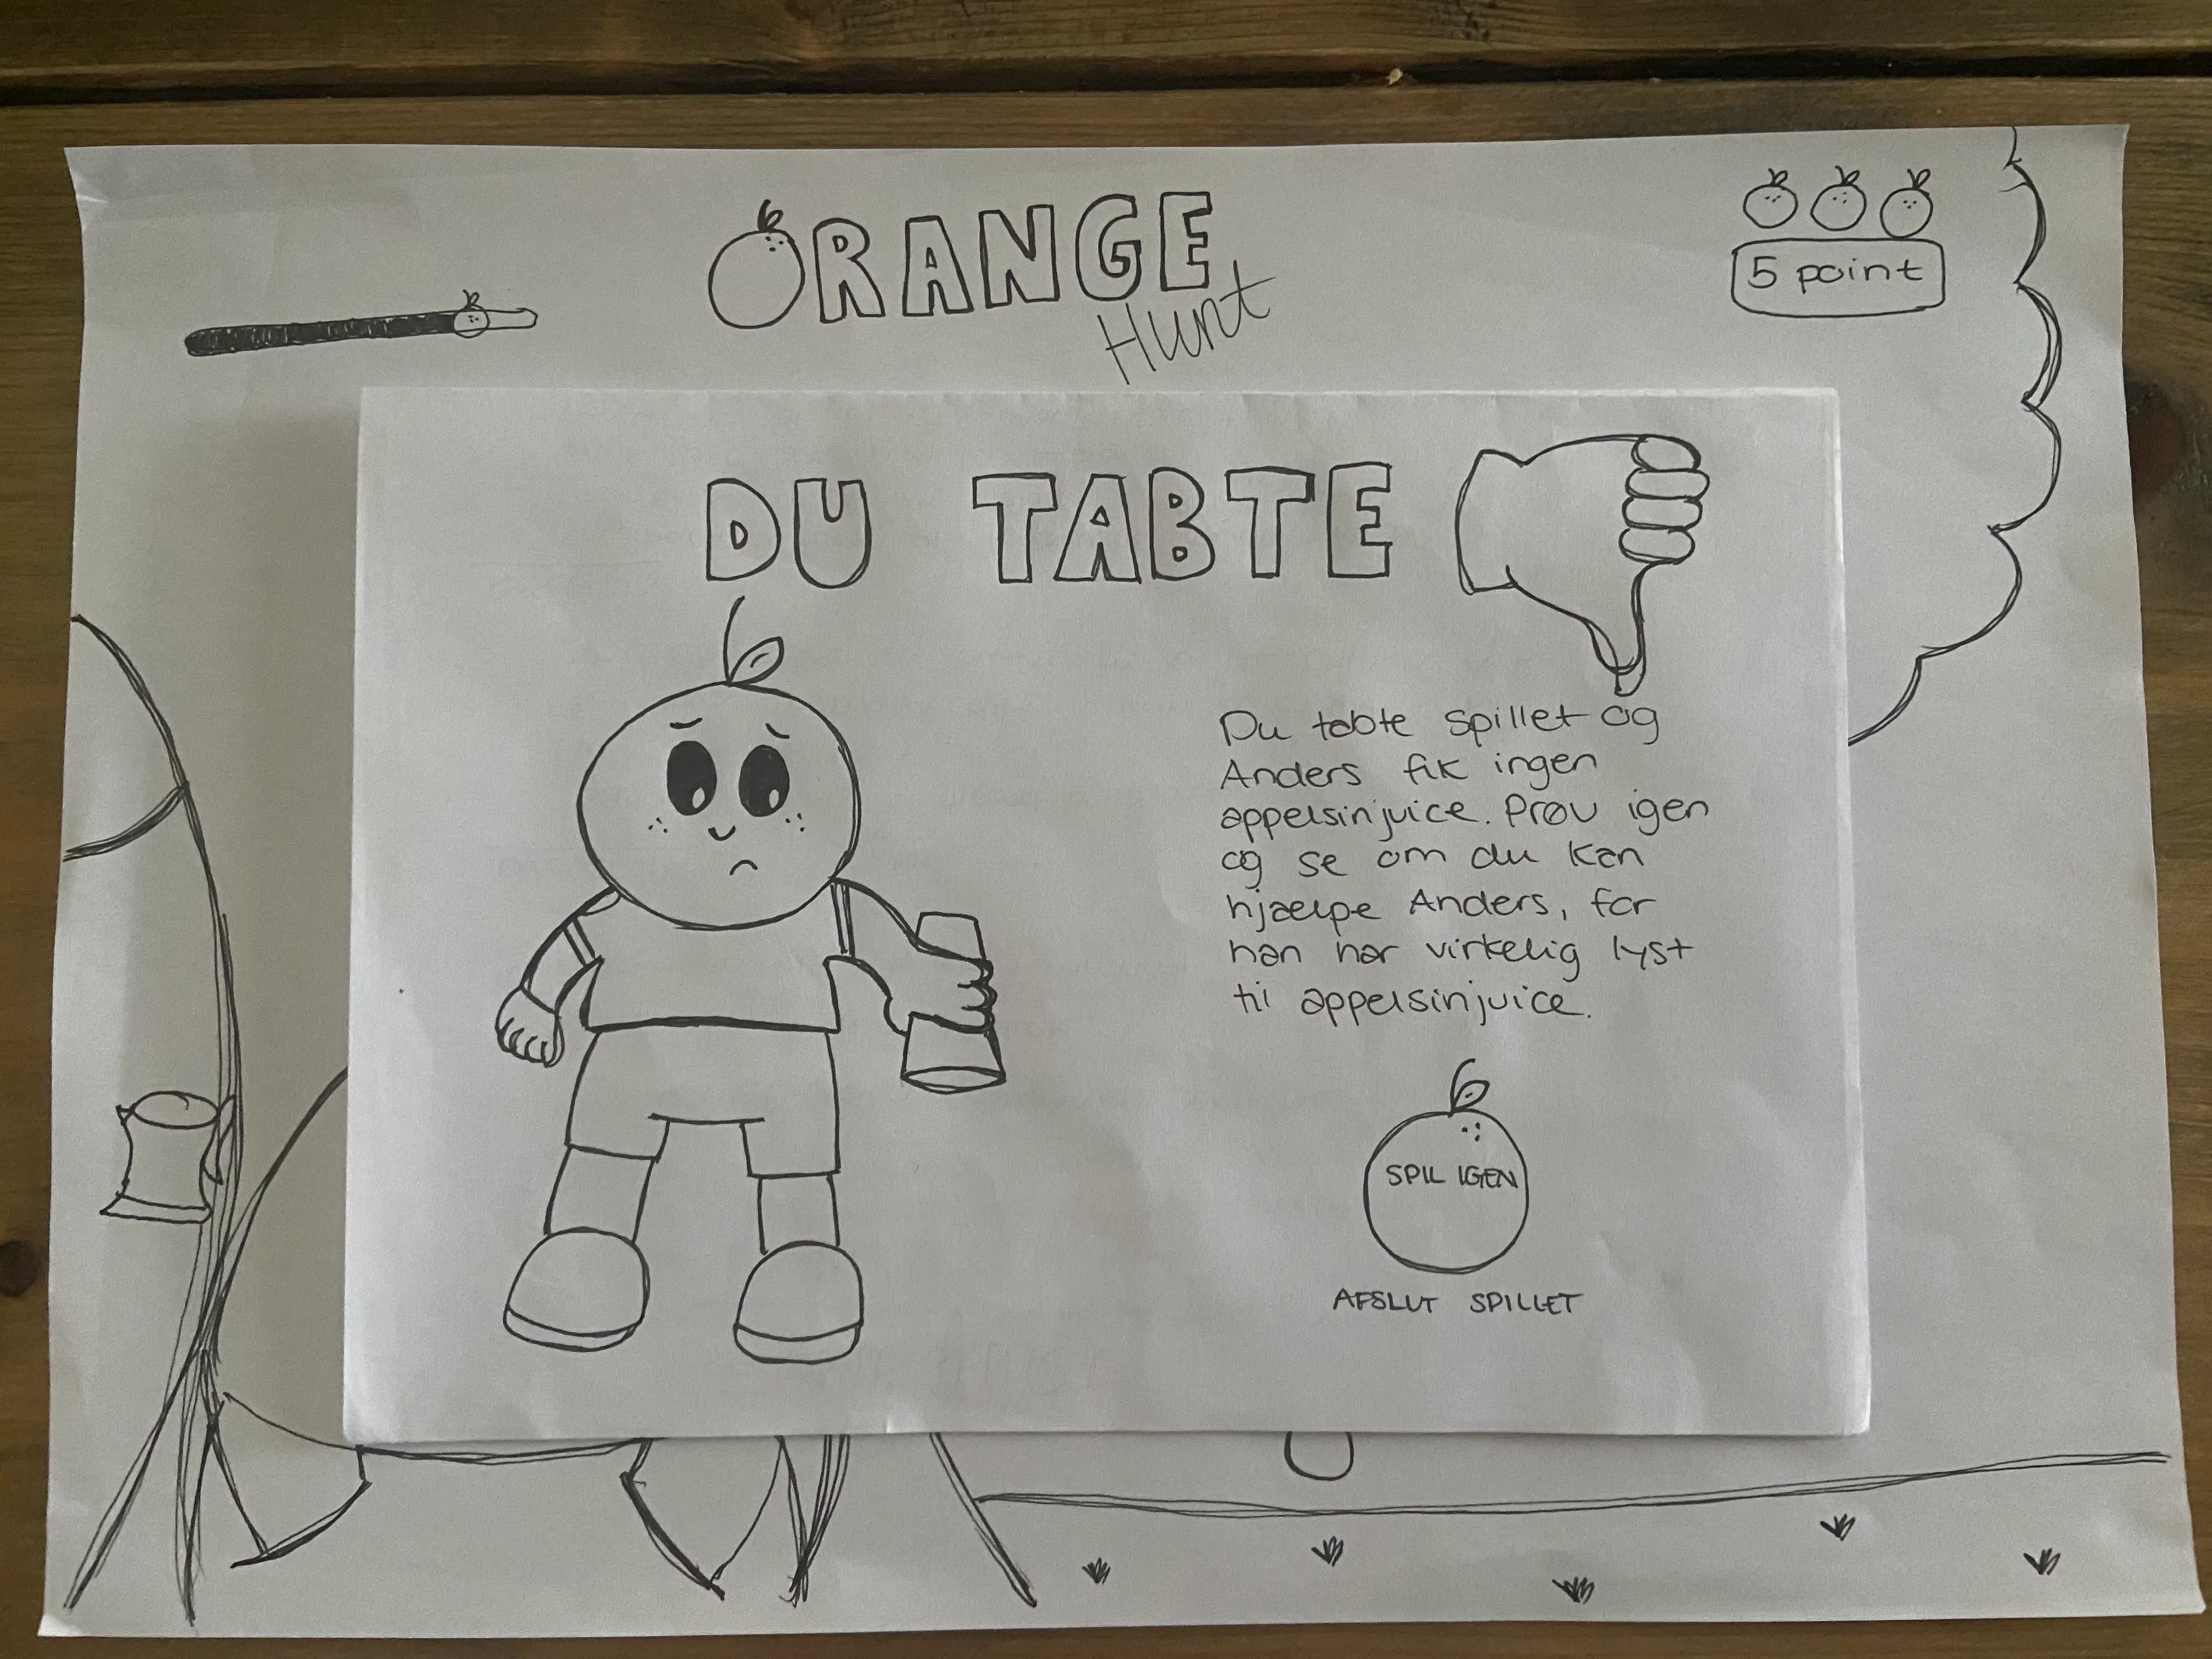 ORANGE
Hunt
5 point
DU TABTE
Du tabte spillet og
Anders fik ingen
appelsinjuice. Prøv igen
og se om du kan
hjælpe Anders, for
han har virkelig lyst
til appelsinjuice.
SPIL IGEN
AFSLUT SPILLET